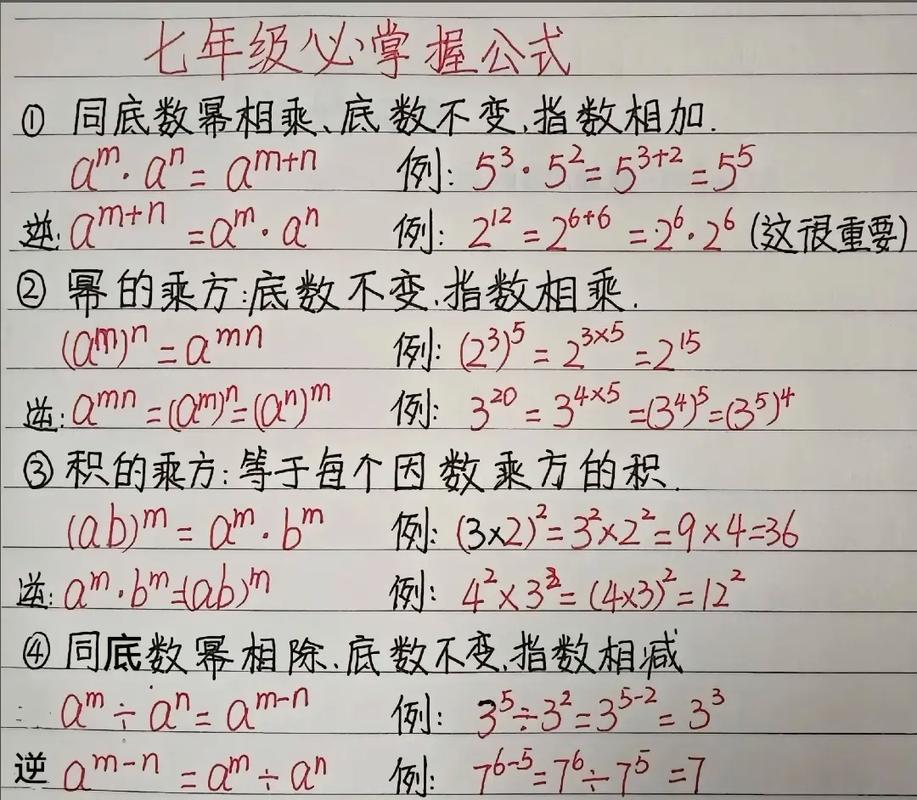 七年级必掌握公式
① 同底数幂相乘、底数不变,指数相加.
aᵐ·aⁿ=aᵐ⁺ⁿ 例: 5³·5²=5³⁺²=5⁵
逆: aᵐ⁺ⁿ=aᵐ·aⁿ 例: 2¹²=2⁶⁺⁶=2⁶·2⁶ (这很重要)
② 幂的乘方:底数不变,指数相乘.
(aᵐ)ⁿ=aᵐⁿ 例: (2³)⁵=2³ˣ⁵=2¹⁵
逆: aᵐⁿ=(aᵐ)ⁿ=(aⁿ)ᵐ 例: 3²⁰=3⁴ˣ⁵=(3⁴)⁵=(3⁵)⁴
③ 积的乘方:等于每个因数乘方的积.
(ab)ᵐ=aᵐ·bᵐ 例: (3×2)²=3²×2²=9×4=36
逆: aᵐ·bᵐ=(ab)ᵐ 例: 4²×3²=(4×3)²=12²
④ 同底数幂相除、底数不变,指数相减
aᵐ÷aⁿ=aᵐ⁻ⁿ 例: 3⁵÷3²=3⁵⁻²=3³
逆 aᵐ⁻ⁿ=aᵐ÷aⁿ 例: 7⁶⁻⁵=7⁶÷7⁵=7